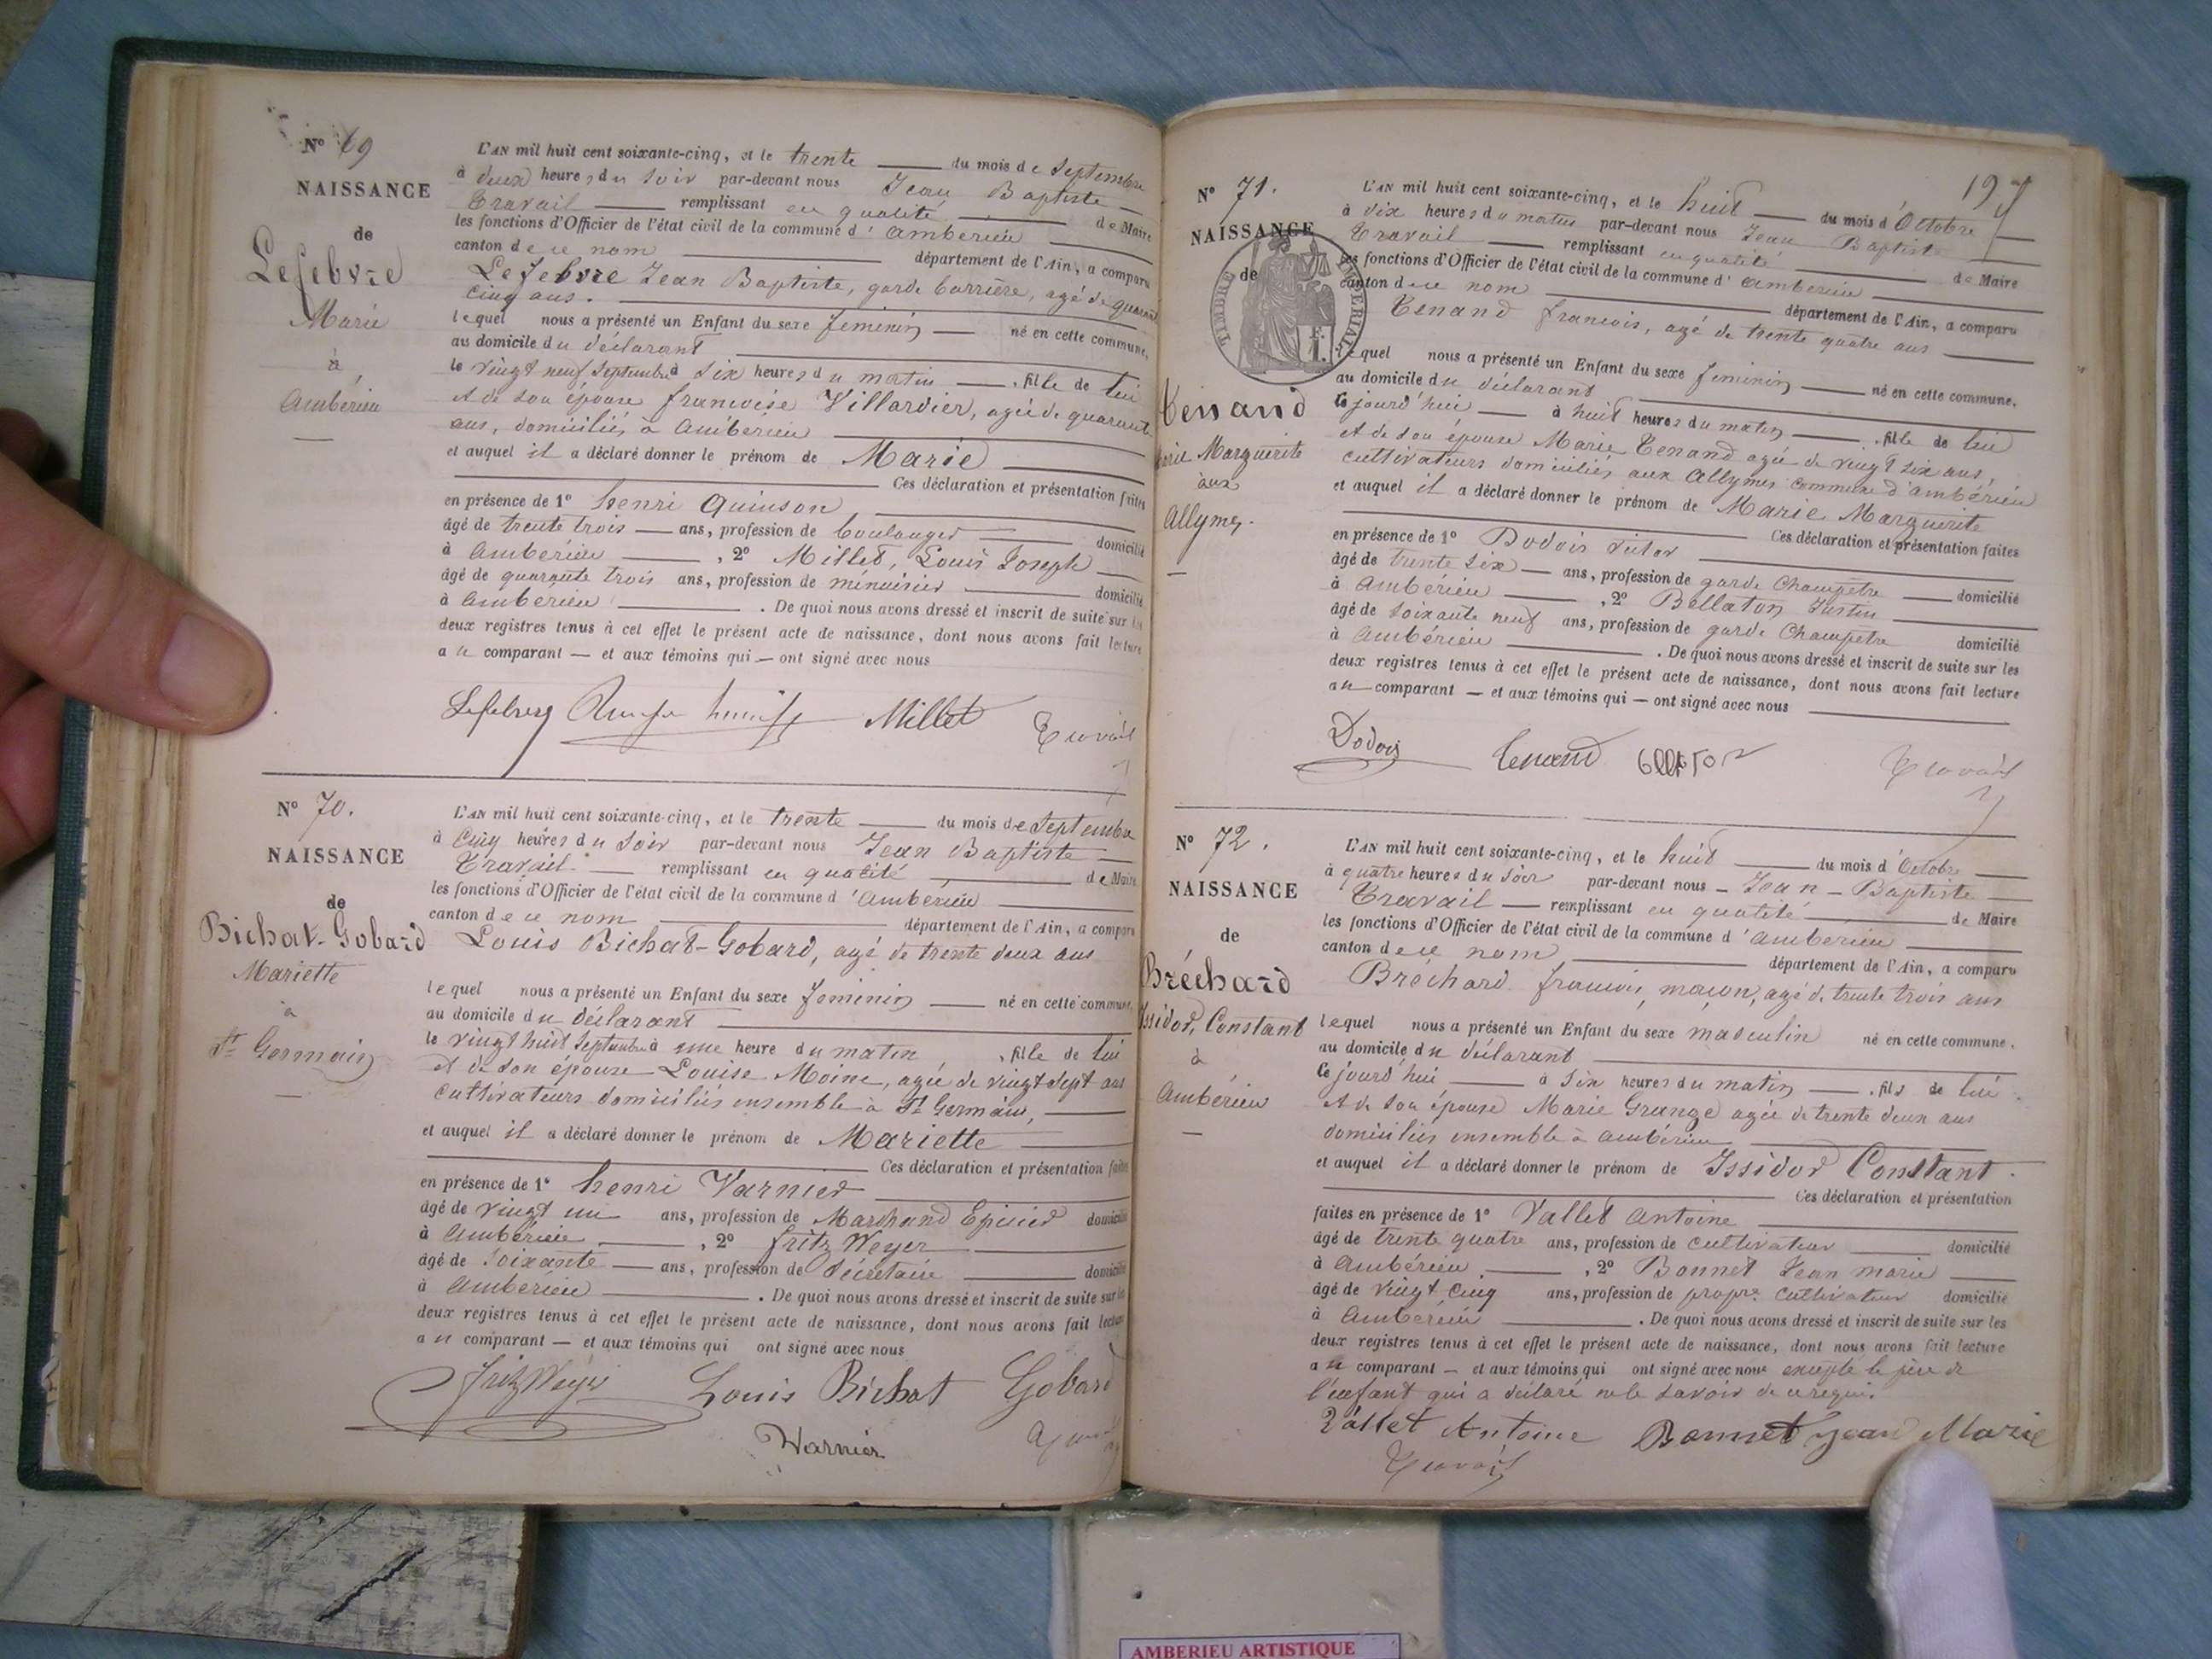 N° 69
NAISSANCE
de
Lefebvre
Marie
à
Ambérieu
L'AN mil huit cent soixante-cinq, et le trente du mois de Septembre
à deux heures du soir par-devant nous Jean Baptiste
Travail remplissant en qualité de Maire
les fonctions d'Officier de l'état civil de la commune d'Ambérieu
canton de ce nom département de l'Ain, a comparu
Lefebvre Jean Baptiste, garde barrière, agé de quarante
cinq ans.
lequel nous a présenté un Enfant du sexe féminin né en cette commune,
au domicile du déclarant
le vingt neuf Septembre à six heures du matin, fille de lui
et de son épouse françoise Villardier, agée de quarante
ans, domiciliés à Ambérieu
et auquel il a déclaré donner le prénom de Marie
Ces déclaration et présentation faites
en présence de 1° henri Quinson
âgé de trente trois ans, profession de boulanger domicilié
à Ambérieu, 2° Millet, Louis Joseph
âgé de quarante trois ans, profession de ménuisier domicilié
à Ambérieu. De quoi nous avons dressé et inscrit de suite sur les
deux registres tenus à cet effet le présent acte de naissance, dont nous avons fait lecture
au comparant et aux témoins qui ont signé avec nous
Millet Travail
N° 70.
NAISSANCE
de
Bichat-Gobard
Mariette
à
St Germain
L'AN mil huit cent soixante-cinq, et le trente du mois de Septembre
à cinq heures du soir par-devant nous Jean Baptiste
Travail remplissant en qualité de Maire
les fonctions d'Officier de l'état civil de la commune d'Ambérieu
canton de ce nom département de l'Ain, a comparu
Louis Bichat-Gobard, agé de trente deux ans
lequel nous a présenté un Enfant du sexe féminin né en cette commune,
au domicile du déclarant
le vingt huit Septembre à une heure du matin, fille de lui
et de son épouse Louise Moine, agée de vingt sept ans
cultivateurs domiciliés ensemble à St Germain,
et auquel il a déclaré donner le prénom de Mariette
Ces déclaration et présentation faites
en présence de 1° henri Varnier
âgé de vingt un ans, profession de Marchand Epicier domicilié
à Ambérieu, 2° fritz Weyer
âgé de soixante ans, profession de Sécrétaire domicilié
à Ambérieu. De quoi nous avons dressé et inscrit de suite sur les
deux registres tenus à cet effet le présent acte de naissance, dont nous avons fait lecture
au comparant et aux témoins qui ont signé avec nous
fritz Weyer Louis Bichat Gobard
Warnier
197
N° 71.
NAISSANCE
de
TIMBRE IMPERIAL
Tenand
Marie Marguerite
aux
Allymes.
L'AN mil huit cent soixante-cinq, et le huit du mois d'Octobre
à dix heures du matin par-devant nous Jean Baptiste
Travail remplissant en qualité de Maire
les fonctions d'Officier de l'état civil de la commune d'Ambérieu
canton de ce nom département de l'Ain, a comparu
Tenand françois, agé de trente quatre ans
lequel nous a présenté un Enfant du sexe féminin né en cette commune,
au domicile du déclarant
ce jourd'hui à huit heures du matin, fille de lui
et de son épouse Marie Tenand agée de vingt six ans,
cultivateurs domiciliés aux Allymes commune d'Ambérieu
et auquel il a déclaré donner le prénom de Marie Marguerite
Ces déclaration et présentation faites
en présence de 1° Dodois victor
âgé de trente six ans, profession de garde Champêtre domicilié
à Ambérieu, 2° Bellaton Justin
âgé de soixante neuf ans, profession de garde Champêtre domicilié
à Ambérieu. De quoi nous avons dressé et inscrit de suite sur les
deux registres tenus à cet effet le présent acte de naissance, dont nous avons fait lecture
au comparant et aux témoins qui ont signé avec nous
Dodois Tenand Travail
N° 72.
NAISSANCE
de
Bréchard
Issidor, Constant
à
Ambérieu
L'AN mil huit cent soixante-cinq, et le huit du mois d'Octobre
à quatre heures du soir par-devant nous Jean-Baptiste
Travail remplissant en qualité de Maire
les fonctions d'Officier de l'état civil de la commune d'Ambérieu
canton de ce nom département de l'Ain, a comparu
Bréchard françois, maçon, agé de trente trois ans
lequel nous a présenté un Enfant du sexe masculin né en cette commune,
au domicile du déclarant
ce jourd'hui à six heures du matin, fils de lui
et de son épouse Marie Grange agée de trente deux ans
domiciliés ensemble à Ambérieu
et auquel il a déclaré donner le prénom de Issidor Constant.
Ces déclaration et présentation
faites en présence de 1° Vallet Antoine
âgé de trente quatre ans, profession de cultivateur domicilié
à Ambérieu, 2° Bonnet Jean marie
âgé de vingt cinq ans, profession de propre cultivateur domicilié
à Ambérieu. De quoi nous avons dressé et inscrit de suite sur les
deux registres tenus à cet effet le présent acte de naissance, dont nous avons fait lecture
au comparant et aux témoins qui ont signé avec nous excepté le père de
l'enfant qui a déclaré ne le savoir de ce requi.
Vallet Antoine Bonnet Jean Marie
Travail
AMBERIEU ARTISTIQUE